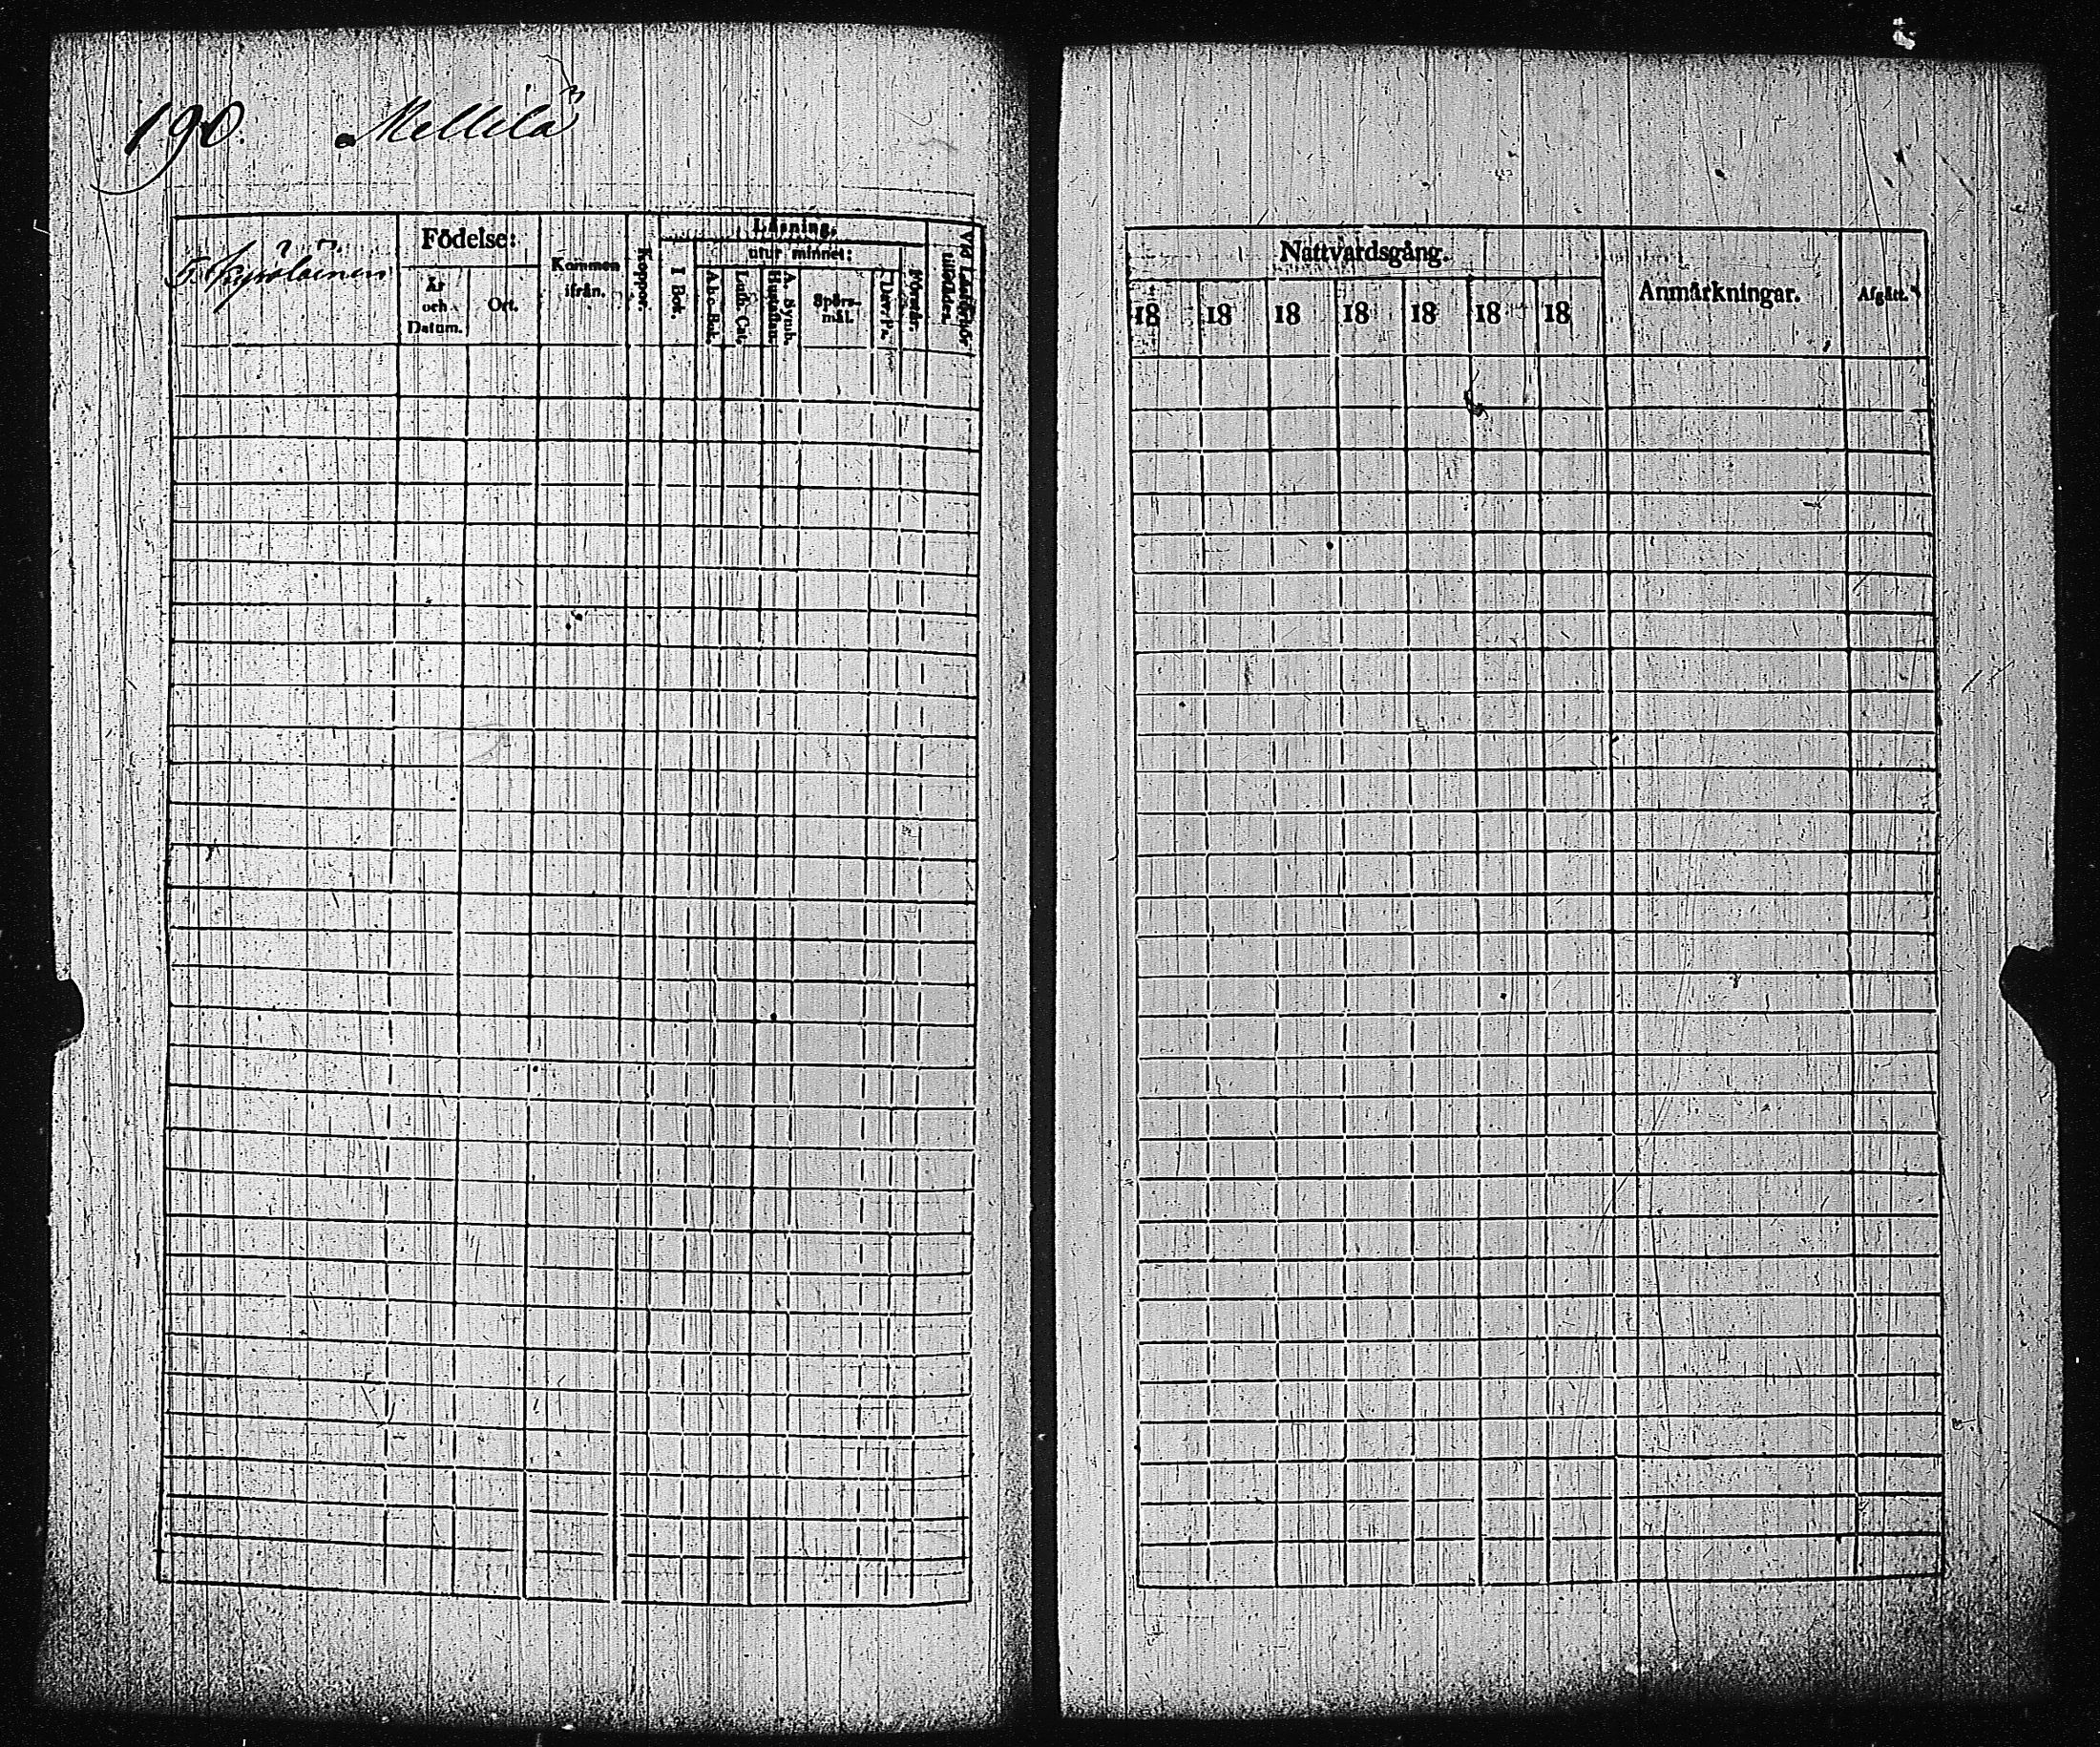 190. Mellilä
5. Kyrölainen
Födelse:
År och Datum.
Ort.
Kommen ifrån.
Koppor.
Läsning.
I Bok.
utur minnet:
A.b.c.-Bok.
Luth. Cat.
A. Symb. Hustaflan.
Spörsmål.
Dav. Ps.
Förstår.
Vid Läseförhör tillstädes.
Nattvardsgång.
18 18 18 18 18 18 18
Anmärkningar.
Afgått.